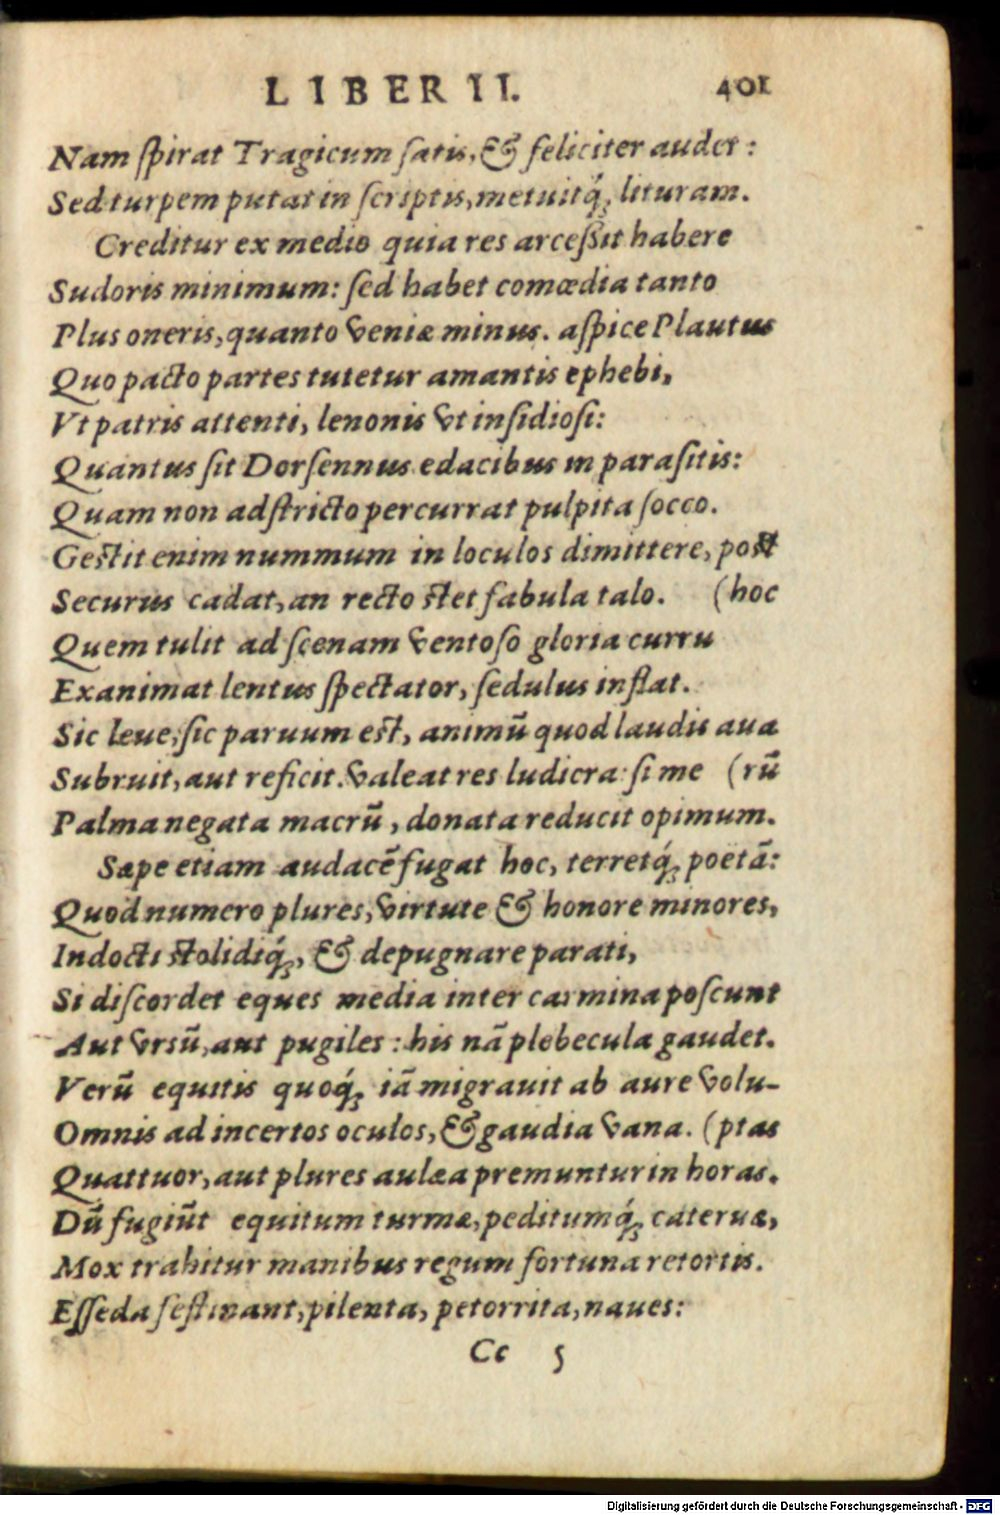 LIBER II. 401
Nam ſpirat Tragicum ſatis, & feliciter audet:
Sed turpem putat in ſcriptis, metuitq́; lituram.
Creditur ex medio quia res arceſsit habere
Sudoris minimum: ſed habet comœdia tanto
Plus oneris, quanto veniæ minus. aſpice Plautus
Quo pacto partes tutetur amantis ephebi,
Vt patris attenti, lenonis vt inſidioſi:
Quantus ſit Dorſennus edacibus in paraſitis:
Quam non adſtricto percurrat pulpita ſocco.
Geſtit enim nummum in loculos dimittere, poſt
Securus cadat, an recto ſtet fabula talo. (hoc
Quem tulit ad ſcenam ventoſo gloria curru
Exanimat lentus ſpectator, ſedulus inflat.
Sic leue, ſic paruum eſt, animũ quod laudis aua
Subruit, aut reficit. valeat res ludicra: ſi me (rũ
Palma negata macrũ, donata reducit opimum.
Sæpe etiam audacẽ fugat hoc, terretq́; poetã:
Quod numero plures, virtute & honore minores,
Indocti ſtolidiq́;, & depugnare parati,
Si diſcordet eques media inter carmina poſcunt
Aut vrsũ, aut pugiles: his nã plebecula gaudet.
Verũ equitis quoq́; iã migrauit ab aure volu-
Omnis ad incertos oculos, & gaudia vana. (ptas
Quattuor, aut plures aulæa premuntur in horas.
Dũ fugiũt equitum turmæ, peditumq́; cateruæ,
Mox trahitur manibus regum fortuna retortis.
Eſſeda feſtinant, pilenta, petorrita, naues:
Cc 5
Digitalisierung gefördert durch die Deutsche Forschungsgemeinschaft - DFG